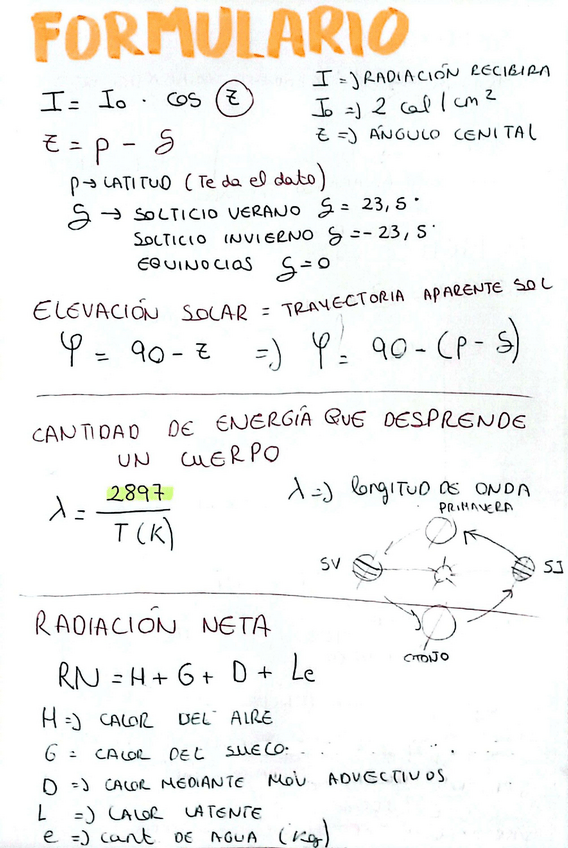 FORMULARIO
I = I₀ · cos Z
I => RADIACIÓN RECIBIRA
I₀ => 2 cal / cm²
Z => ÁNGULO CENITAL
Z = p - δ
p → LATITUD (Te da el dato)
δ → SOLTICIO VERANO δ = 23,5°
SOLTICIO INVIERNO δ = - 23,5°
EQUINOCIAS δ = 0
ELEVACIÓN SOLAR = TRAYECTORIA APARENTE SOL
φ = 90 - Z => φ = 90 - (p - δ)
CANTIDAD DE ENERGÍA QUE DESPRENDE
UN CUERPO
λ = 2897 / T (K)
λ => longITUD DE ONDA
PRIMAVERA
SV
SI
OTOÑO
RADIACIÓN NETA
RN = H + G + D + Le
H => CALOR DEL AIRE
G = CALOR DEL SUELO.
D => CALOR MEDIANTE MOV ADVECTIVOS
L => CALOR LATENTE
e => cant DE AGUA (Kg)